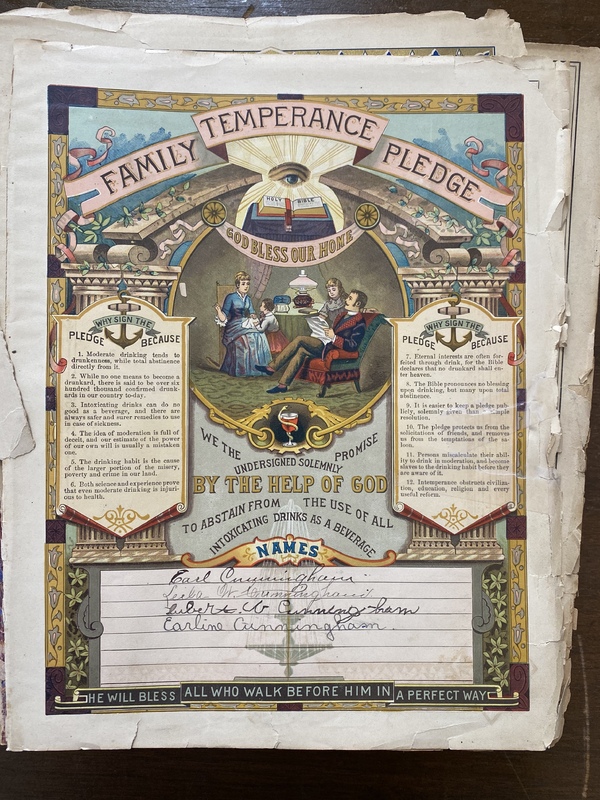 FAMILY TEMPERANCE PLEDGE
HOLY BIBLE
GOD BLESS OUR HOME
WHY SIGN THE
PLEDGE BECAUSE
1. Moderate drinking tends to
drunkenness, while total abstinence
directly from it.
2. While no one means to become a
drunkard, there is said to be over six
hundred thousand confirmed drunk-
ards in our country to-day.
3. Intoxicating drinks can do no
good as a beverage, and there are
always safer and surer remedies to use
in case of sickness.
4. The idea of moderation is full of
deceit, and our estimate of the power
of our own will is usually a mistaken
one.
5. The drinking habit is the cause
of the larger portion of the misery,
poverty and crime in our land.
6. Both science and experience prove
that even moderate drinking is injuri-
ous to health.
WHY SIGN THE
PLEDGE BECAUSE
7. Eternal interests are often for-
feited through drink, for the Bible
declares that no drunkard shall en-
ter heaven.
8. The Bible pronounces no blessing
upon drinking, but many upon total
abstinence.
9. It is easier to keep a pledge pub-
licly, solemnly given than simple
resolution.
10. The pledge protects us from the
solicitations of friends, and removes
us from the temptations of the sa-
loon.
11. Persons miscalculate their abil-
ity to drink in moderation, and become
slaves to the drinking habit before they
are aware of it.
12. Intemperance obstructs civiliza-
tion, education, religion and every
useful reform.
WE THE UNDERSIGNED SOLEMNLY PROMISE
BY THE HELP OF GOD
TO ABSTAIN FROM THE USE OF ALL
INTOXICATING DRINKS AS A BEVERAGE
NAMES
Earl Cunningham
W. Cunningham
W Cunningham
Earline Cunningham.
HE WILL BLESS ALL WHO WALK BEFORE HIM IN A PERFECT WAY